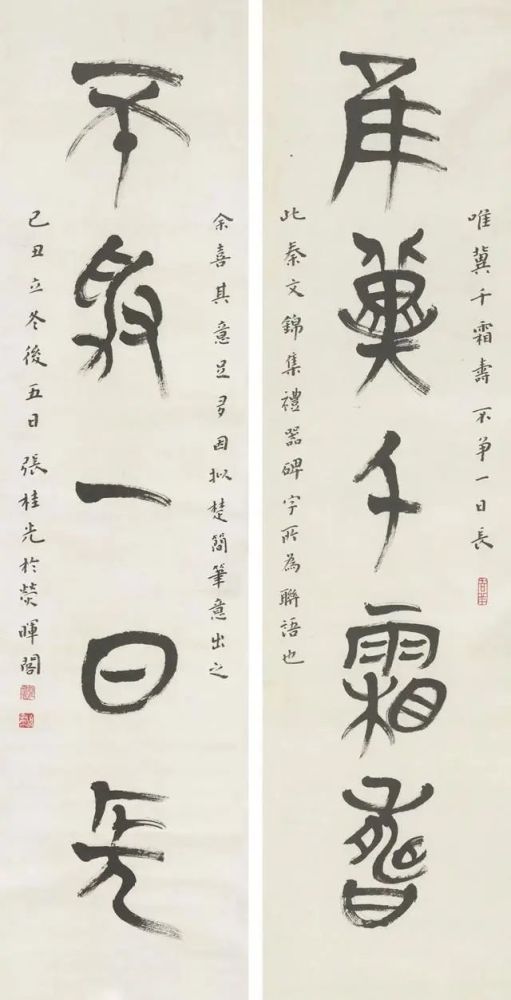 唯冀千霜壽不爭一日長
隹冀千霜壽
此秦文錦集禮器碑字所為聯語也
余喜其意足多因拟楚簡筆意出之
不爭一日長
己丑立冬後五日張桂光於熒暉閣